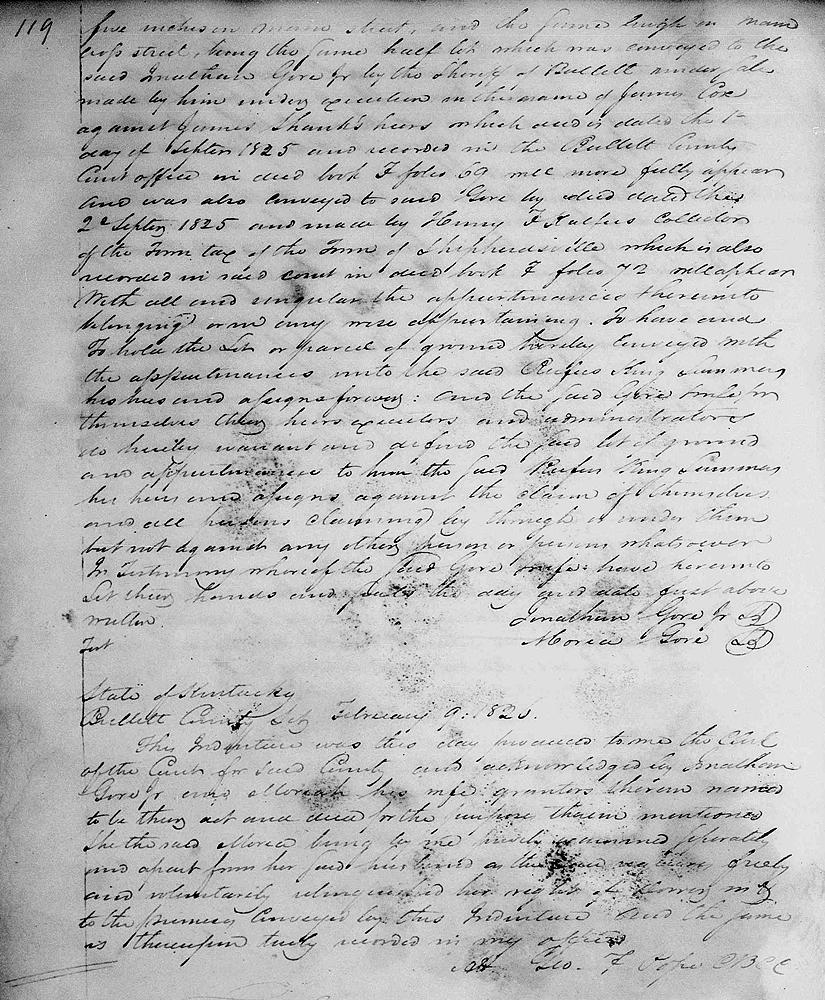 119
five inches on main street, and the same length on main
cross street, being the same half lot which was conveyed to the
said Jonathan Gore Jr by the Sheriff of Bullett under sale
made by him under execution in the name of James Cox
against James Shanks heirs which deed is dated the 1st
day of Septer 1825 and recorded in the Bullett County
Court office in deed book F folio 69 will more fully appear
and was also conveyed to said Gore by deed dated the
2d Septer 1825 and made by Henry F Kalfus Collector
of the Town tax of the Town of Shepherdsville which is also
recorded in said court in deed book F folio 72 will appear
With all and singular the appurtinances thereunto
belonging or in any wise appurtaining. To have and
To hold the Lot or parcel of ground hereby Conveyed with
the appurtinances unto the said Rufus King Summers
his heirs and assigns forever: and the said Gore & wife for
themselves their heirs executors and administrators
do hereby warrant and defend the said lot of ground
and appurtinances to him the said Rufus King Summers
his heirs and assigns against the claim of themselves
and all persons claiming by through or under them
but not against any other person or persons whatsoever
In Testimony whereof the said Gore & wife have hereunto
Set their hands and seals the day and date first above
written.
Jonathan Gore Jr
Moriea Gore
Test
State of Kentucky
Bullett County Sct February 9: 1826.
This Indenture was this day produced to me the Clerk
of the Court for said County and acknowledged by Jonathan
Gore Jr and Moriah his wife grantors therein named
to be their act and deed for the purpose therein mentioned
She the said Morea being by me privily examined seperately
and apart from her said husband as the law requires freely
and voluntarily relinquished her right of Dower in &
to the premises Conveyed by this Indenture and the same
is thereupon truly recorded in my office
Att Geo. F Pope CBCC